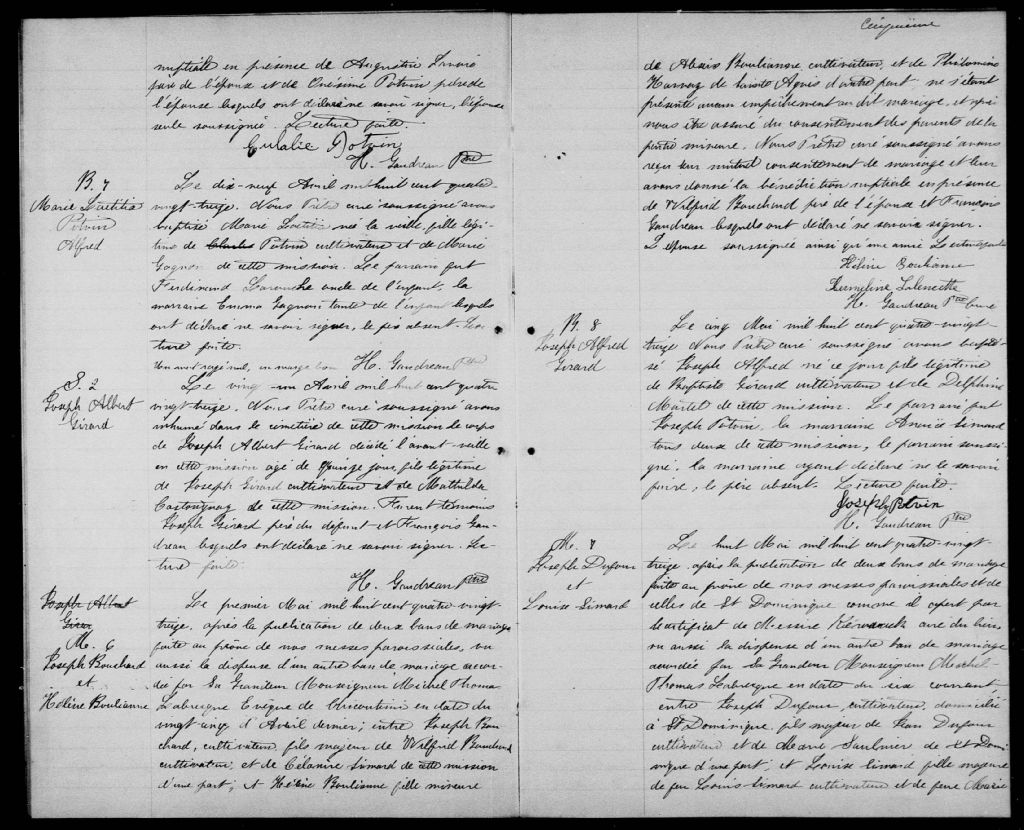 nuptiale en présence de Augustin Lavoie
père de l'époux et de Onésime Potvin père de
l'épouse lesquels ont déclaré ne savoir signer, l'épouse
seule soussignée. Lecture faite.
Eulalie Potvin
H. Gaudreau Ptre
B. 7
Marie Lætitia
Potvin
Alfred
Le dix-neuf Avril mil huit cent quatre-
vingt-treize. Nous Prêtre curé soussigné avons
baptisé Marie Lætitia née la veille, fille légi-
time de Charles Potvin cultivateur et de Marie
Gagnon de cette mission. Le parrain fut
Ferdinand Larouche oncle de l'enfant, la
marraine Emma Gagnon tante de l'enfant lesquels
ont déclaré ne savoir signer, le père absent. Lec-
ture faite.
Un mot rayé nul, en marge bon H. Gaudreau Ptre
S. 2
Joseph Albert
Girard
Le vingt-un Avril mil huit cent quatre
vingt treize. Nous Prêtre curé soussigné avons
inhumé dans le cimetière de cette mission le corps
de Joseph Albert Girard décédé l'avant-veille
en cette mission agé de quinze jours, fils légitime
de Joseph Girard cultivateur et de Mathilda
Castonguay de cette mission. Furent témoins
Joseph Girard père du défunt et François Gau-
dreau lesquels ont déclaré ne savoir signer. Lec-
ture faite.
H. Gaudreau Ptre
Joseph Albert
Girar
M. 6
Joseph Bouchard
et
Hélène Boulianne
Le premier Mai mil huit cent quatre vingt
treize, après la publication de deux bans de mariage
faite au prône de nos messes paroissiales, vu
aussi la dispense d'un autre ban de mariage accor-
dée par Sa Grandeur Monseigneur Michel Thomas
Labrecque Evêque de Chicoutimi en date du
vingt-cinq d'Avril dernier; entre Joseph Bou-
chard, cultivateur, fils majeur de Wilfrid Bouchard
cultivateur, et de Célanire Simard de cette mission
d'une part; et Hélène Boulianne fille mineure
Cinquième
de Alexis Boulianne cultivateur, et de Philomène
Harvey de Sainte Agnès d'autre part, ne s'étant
présenté aucun empêchement au dit mariage, et après
nous être assuré du consentement des parents de la
partie mineure. Nous Prêtre curé soussigné avons
reçu leur mutuel consentement de mariage et leur
avons donné la bénédiction nuptiale en présence
de Wilfrid Bouchard père de l'époux et François
Gaudreau lesquels ont déclaré ne savoir signer.
L'épouse soussignée ainsi qu'une amie Lecture faite
Hélène Boulianne
H. Gaudreau Ptre Curé
B. 8
Joseph Alfred
Girard
Le cinq Mai mil huit cent quatre-vingt
treize Nous Prêtre curé soussigné avons bapti-
sé Joseph Alfred né ce jour fils légitime
de Baptiste Girard cultivateur et de Delphine
Martel de cette mission. Le parrain fut
Joseph Potvin, la marraine Simard
tous deux de cette mission, le parrain soussi-
gné, la marraine ayant déclaré ne le savoir
faire, le père absent. Lecture faite.
Joseph Potvin
H. Gaudreau Ptre
M. 7
Joseph Dufour
et
Louise Simard
Le huit Mai mil huit cent quatre-vingt
treize, après la publication de deux bans de mariage
faite au prône de nos messes paroissiales et de
celles de St Dominique comme il apert par
le certificat de Messire curé du lieu
vu aussi la dispense d'un autre ban de mariage
accordée par Sa Grandeur Monseigneur Michel-
Thomas Labrecque en date du six courant
entre Joseph Dufour, cultivateur, domicilié
à St Dominique, fils majeur de Jean Dufour
cultivateur et de Marie Saulnier de St Domi-
nique d'une part; et Louise Simard fille majeure
de feu Louis Simard cultivateur et de feue Marie